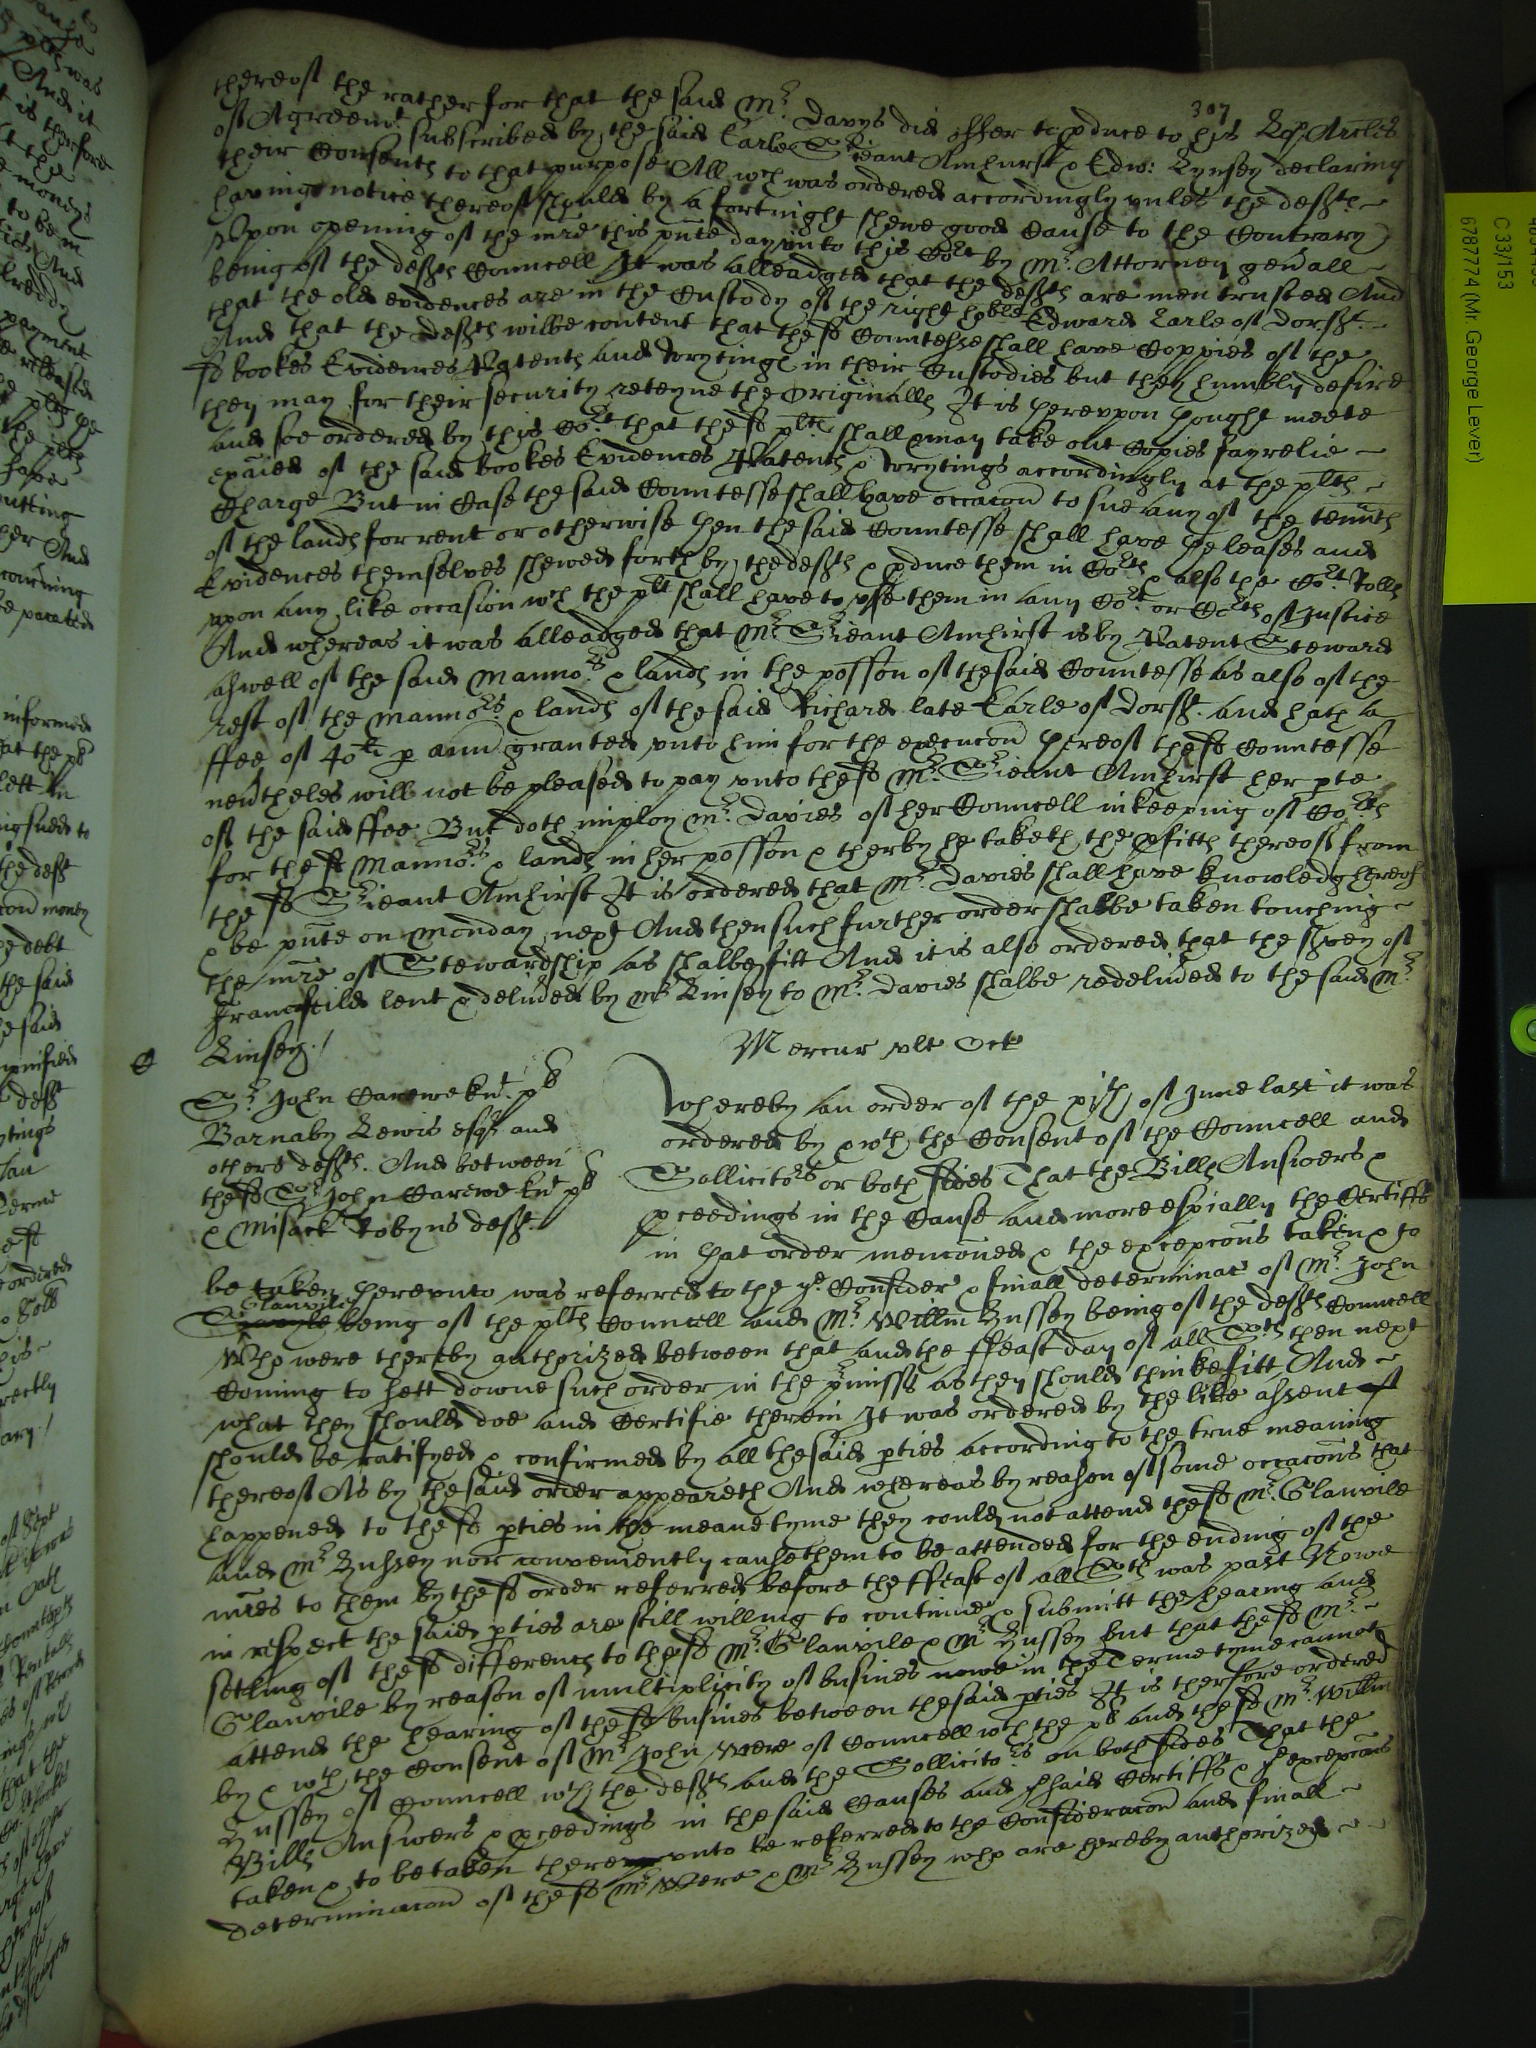 307
thereof the rather for that the said Mr Davys did offer to pduce to his Lop Arcles
of Agreemt subscribed by the said Earle Srieant Amhurst & Edw: Lynsey declaring
their Consents to that purpose All wch was ordered accordingly unles the defts
having notice thereof should by a fortnight shewe good Cause to the Contrary
Upon opening of the mre this pnte day unto this Cort by Mr Attorney gen'all
being of the defts Councell It was alleadged that the defts are men trusted And
that the old evidences are in the Custody of the right hoble Edward Earle of Dorst
And that the defts wilbe content that the sd Countesse shall have Coppies of the
sd bookes Evidences Patents and wrytings in their Custodies but they humbly desire
they may for their security reteyne the Originalls It is hereuppon thought meete
and soe ordered by this Cort that the sd plts shall & may take out Copies fayrelie
exaied of the said bookes Evidences Patents & wrytings accordingly at the plts
Charge But in Case the said Countesse shall have occacon to sue any of the tennts
of the lands for rent or otherwise then the said Countesse shall have the leases and
Evidences themselves shewed forth by the defts & pduce them in Corts & also the Cort Rolls
upon any like occasion wch the plt shall have to use them in any Cort or Corts of Justice
And whereas it was alleadged that Mr Srieant Amhirst is by Patent Steward
aswell of the said Mannors & lands in the posson of the said Countesse as also of the
rest of the Mannors & lands of the said Richard late Earle of Dorst and hath a
ffee of 40li p ann granted unto him for the execucon thereof the sd Countesse
nev'theles will not be pleased to pay unto the sd Mr Srieant Amhirst her pte
of the said ffee But doth imploy Mr Davies of her Councell in keeping of Corts
for the sd Mannors & lands in her posson & therby he taketh the pfitts thereof from
the sd Srieant Amhirst It is ordered that Mr Davies shall have knowledg hereof
& be pnte on Monday next And then such further order shalbe taken touching
the mre of Stewardship as shalbe fitt And it is also ordered that the Svey of
Framfeild lent & deliu'ed by Mr Linsey to Mr Davies shalbe redeliu'ed to the said Mr
Linsey /
Mercur ult Octr
Sr John Careweknt pls
Barnaby Lewis esqr and
others defts. And between
the sd Sr John Carewe knt pls
& Misack Tobyns deft
Whereby an order of the xijth of June last it was
ordered by & wth the Consent of the Councell and
Sollicitors or both sides That the Bills Answers &
pceedings in the Cause and more espially the Certiffs
in that order mencoued & the excepcons taken & to
be taken thereunto was referred to the ye Consider & finall determinac of Mr John
Glanvile being of the plts Councell and Mr Willm Hussey being of the defts Councell
Who were thereby authorized between that and the ffeast day of all Sts then next
Coming to sett downe such order in the pmisss as they should thinke fitt And
what they should doe and Certifie therein It was ordered by the like assent
should be ratifyed & confirmed by all the said pties according to the true meaning
thereof As by the said order appeareth And whereas by reason of some occacons that
happened to the sd pties in the meane tyme they could not attend the sd Mr Glanvile
and Mr Hussey nor conveniently cause them to be attended for the ending of the
mres to them by the sd order referred before the ffeast of all Sts was past Nowe
in respect the said pties are still willing to continue & submitt the hearing and
setling of the sd differencs to the sd Mr Glanvile & Mr Hussey but that the sd Mr
Glanvile by reason of multiplicity of busines nowe in the Terme tyme cannot
attend the hearing of the sd busines between the said pties It is therefore ordered
by & wth the Consent of Mr John Were of Councell wth the pls and the sd Mr Willm
Hussey of Councell wth the defts and the Sollicitors on both sides That the
Bills Answers & pceedings in the said Causes and the said Certiffs & ye excepcons
taken & to be taken there unto be referred to the Consideracon and finall
determinacon of the sd Mr Were & Mr Hussey who are hereby authorized
C 33/153
6787774 (Mr. George Lever)